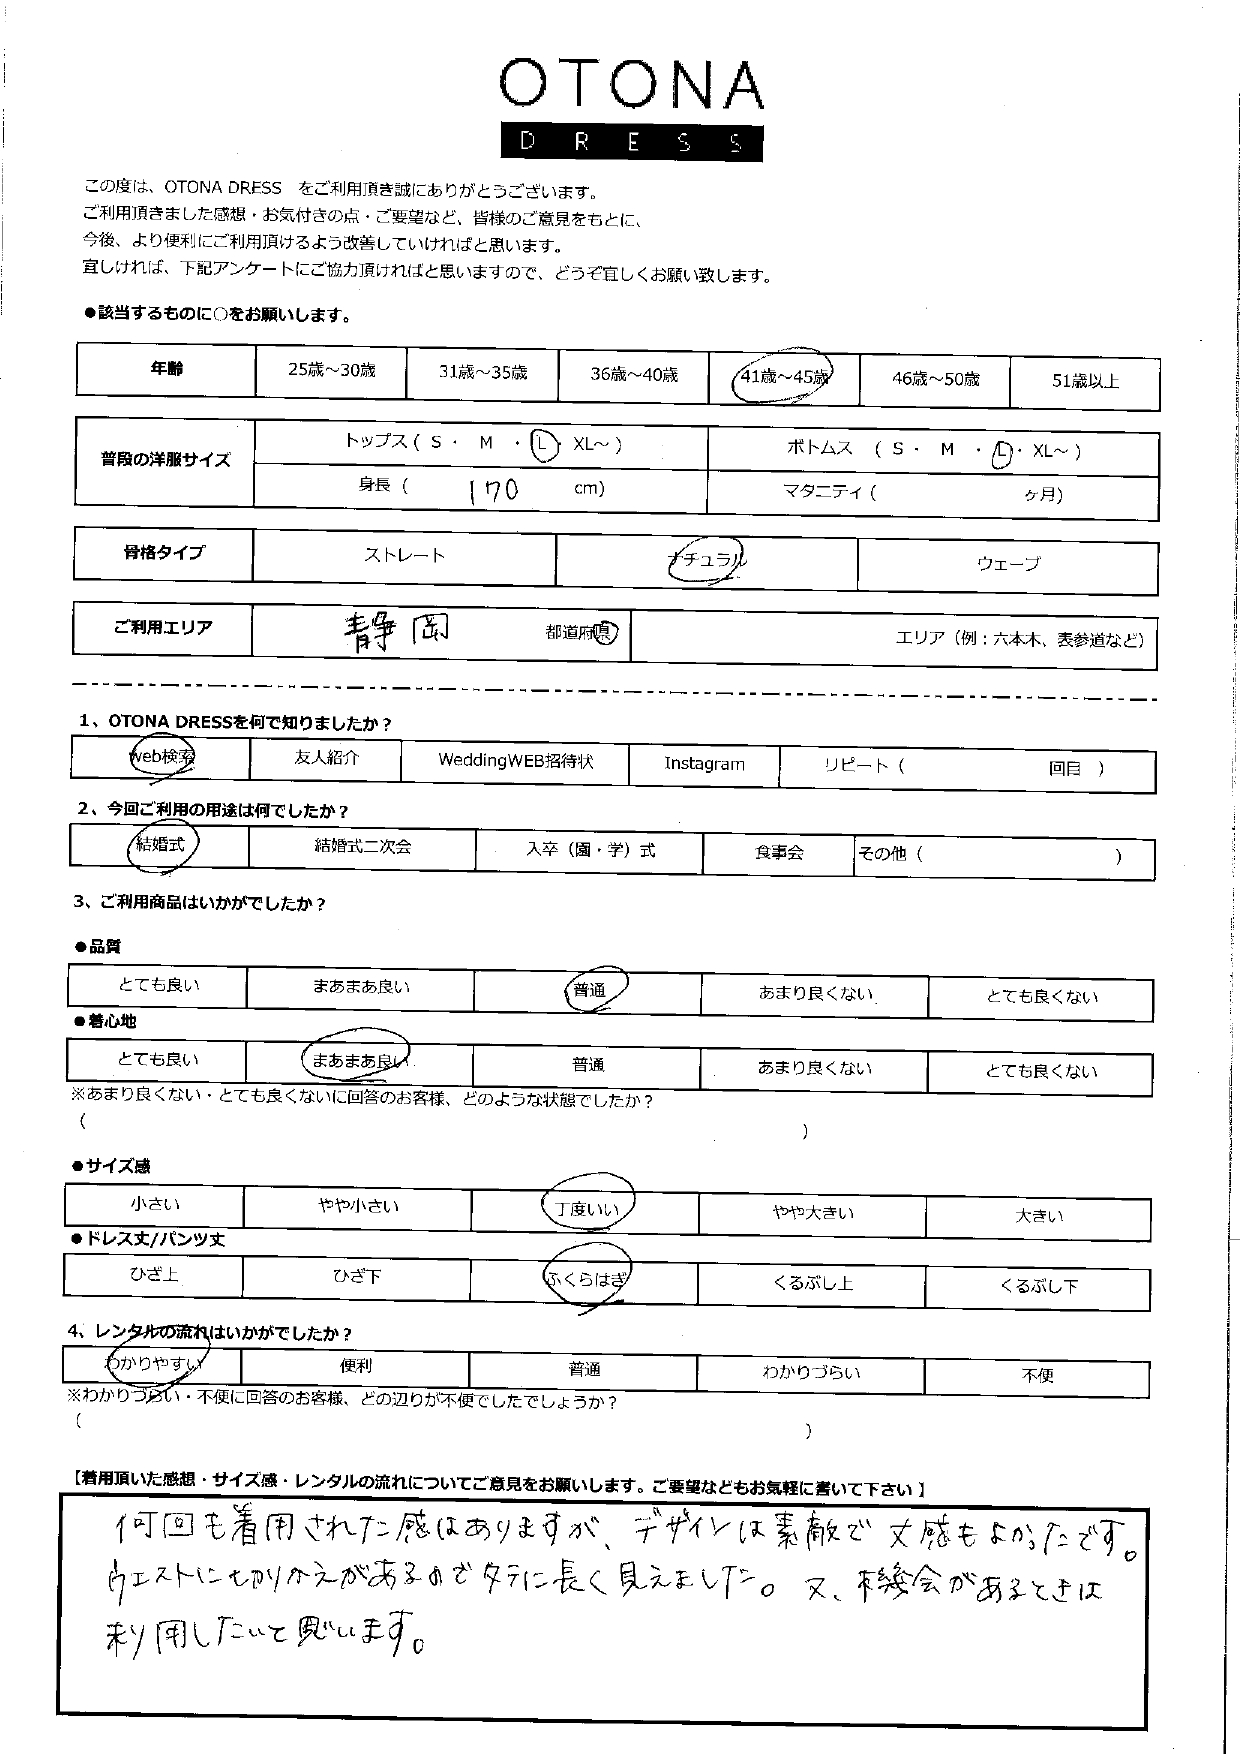 OTONA
DRESS
この度は、OTONA DRESS　をご利用頂き誠にありがとうございます。
ご利用頂きました感想・お気付きの点・ご要望など、皆様のご意見をもとに、
今後、より便利にご利用頂けるよう改善していければと思います。
宜しければ、下記アンケートにご協力頂ければと思いますので、どうぞ宜しくお願い致します。
●該当するものに○をお願いします。
年齢 25歳～30歳 31歳～35歳 36歳～40歳 41歳～45歳 46歳～50歳 51歳以上
普段の洋服サイズ トップス（ S ・ M ・ L ・ XL～ ） ボトムス （ S ・ M ・ L ・ XL～ ）
身長（ 170 cm） マタニティ（ ヶ月）
骨格タイプ ストレート ナチュラル ウェーブ
ご利用エリア 静岡 都道府県 エリア（例：六本木、表参道など）
1、OTONA DRESSを何で知りましたか？
web検索 友人紹介 WeddingWEB招待状 Instagram リピート（ 回目 ）
2、今回ご利用の用途は何でしたか？
結婚式 結婚式二次会 入卒（園・学）式 食事会 その他（ ）
3、ご利用商品はいかがでしたか？
●品質
とても良い まあまあ良い 普通 あまり良くない とても良くない
●着心地
とても良い まあまあ良い 普通 あまり良くない とても良くない
※あまり良くない・とても良くないに回答のお客様、どのような状態でしたか？
（ ）
●サイズ感
小さい やや小さい 丁度いい やや大きい 大きい
●ドレス丈/パンツ丈
ひざ上 ひざ下 ふくらはぎ くるぶし上 くるぶし下
4、レンタルの流れはいかがでしたか？
わかりやすい 便利 普通 わかりづらい 不便
※わかりづらい・不便に回答のお客様、どの辺りが不便でしたでしょうか？
（ ）
【着用頂いた感想・サイズ感・レンタルの流れについてご意見をお願いします。ご要望などもお気軽に書いて下さい】
何回も着用された感はありますが、デザインは素敵で丈感もよかったです。
ウエストに切りかえがあるのでタテに長く見えました。又、機会があるときは
利用したいと思います。